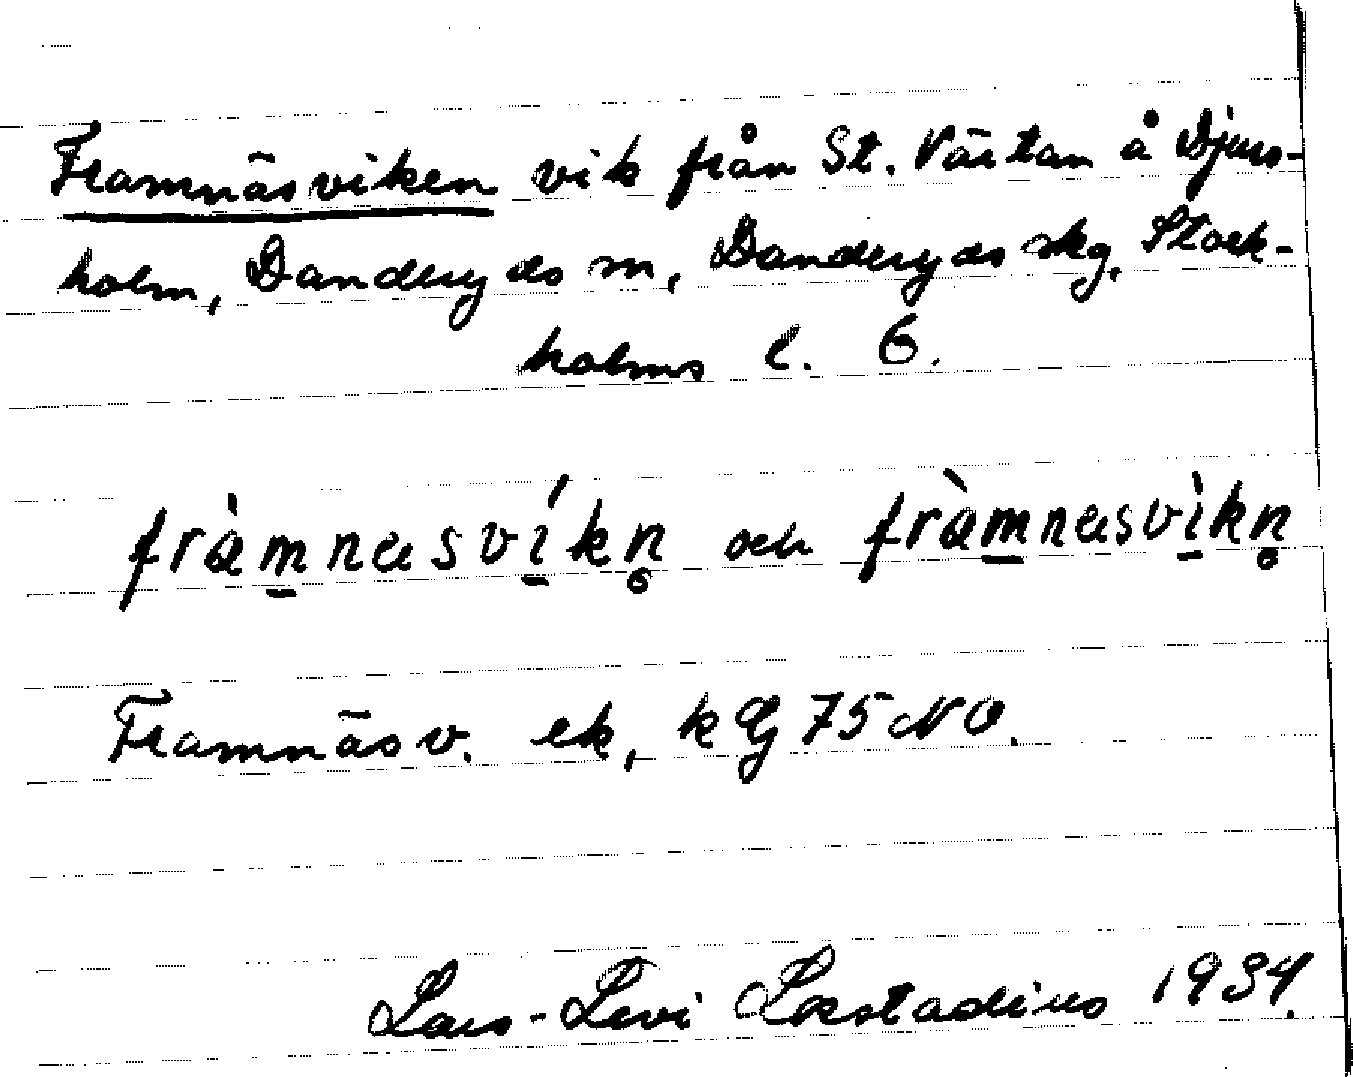 Framnäsviken vik från St. Värtan å Djurs-
holm, Danderyds sn, Danderyds skg, Stock-
holms l. 6.
fràm̲nasví̲kn̥ och fràm̲nasvì̲kn̥
Framnäsv. ek, k Eg 75 NO.
Lars-Levi Læstadius 1934.